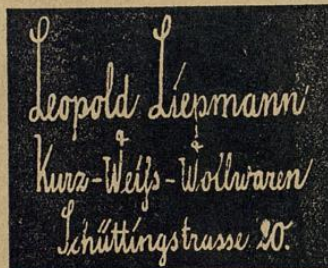 Leopold Liepmann
Kurz-Weiß- & Wollwaren
Schüttingstrasse 20.